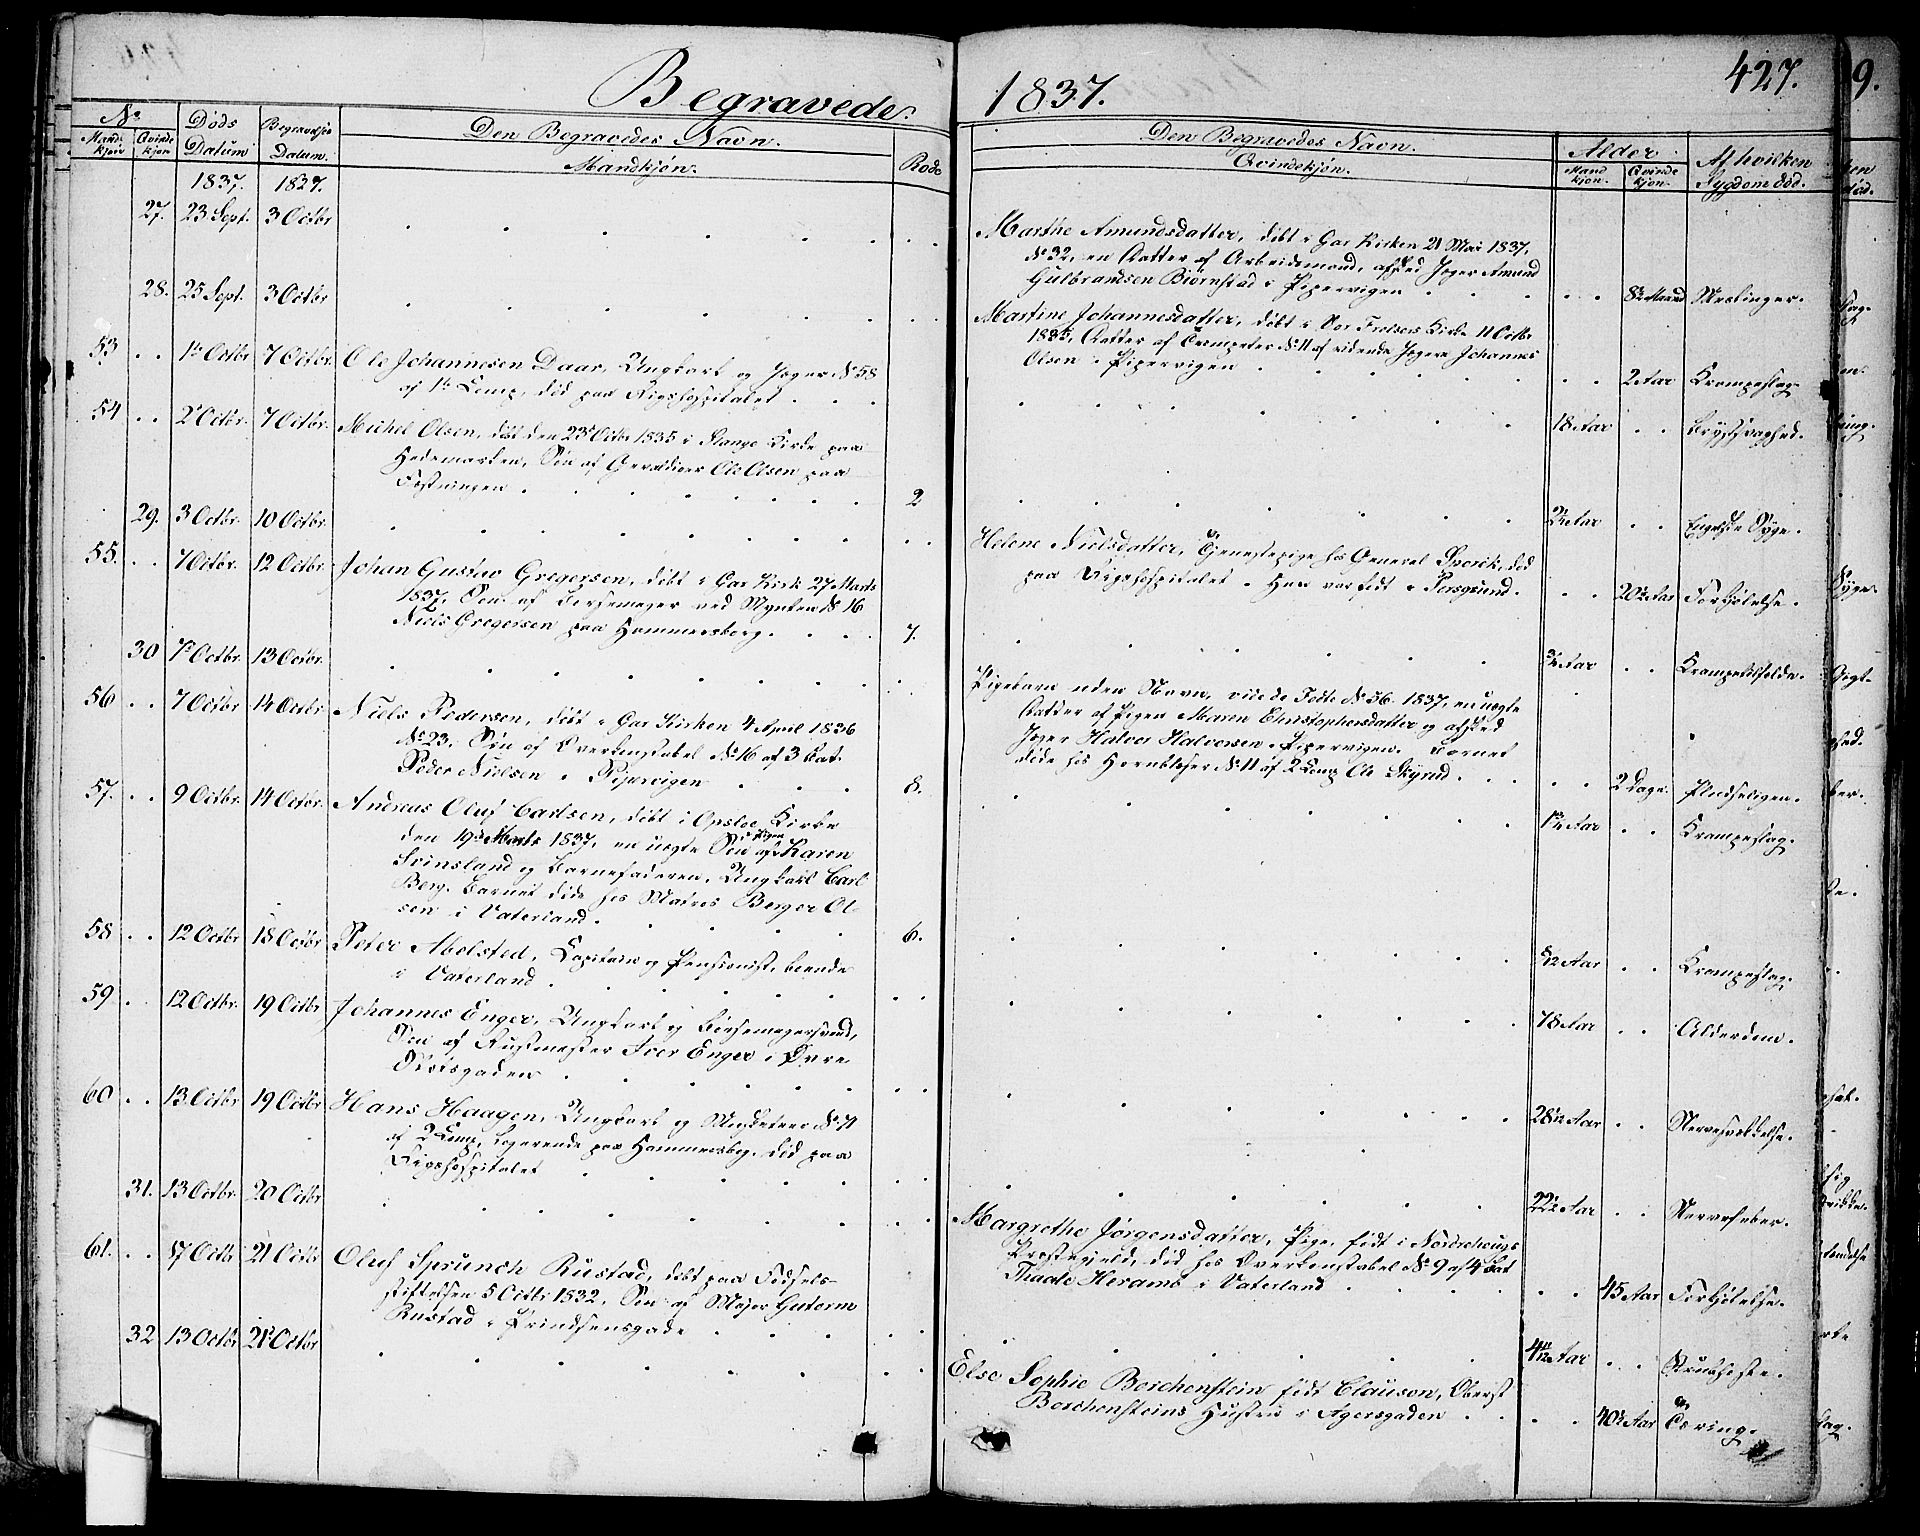 Begravede. 1837. 427.
9.
No. Døds Datum Begravelses Datum. Den Begravedes Navn. Rode Den Begravedes Navn. Alder Af hvilken Sygdom død.
Mandkjøn Qvindekjøn Mandkjøn. Qvindekjøn. Mandkjøn. Qvindekjøn.
1837. 1827.
27. 23 Sept. 3 Octbr
Marthe Amundsdatter, døbt i Gar Kirken 21 Mai 1837,
No 32, en Datter af Arbeidsmand, afsked Jæger Amund
Gulbrandsen Biørnstad i Pipervigen 8½ Maaned Meslinger.
28. 25 Sept. 3 Octbr
Martine Johannesdatter, døbt i Vor Frelsers Kirke 11 Octbr
1835, Datter af Trompeter No 11 af ridende Jægere Johannes
Olsen i Pipervigen 2 Aar Krampeslag.
53 1 Octbr 7 Octbr. Ole Johannesen Daar, Ungkarl og Jæger No 58
af 1ste Comp, død paa Rigshospitalet 18 Aar Brystsvaghed.
54 2 Octbr. 7 Octbr. Michel Olsen, døbt den 23 Octbr 1835 i Stange Kirke paa
Hedemarken, Søn af Geraldiger Ole Olsen paa
Fæstningen 2 2 Aar Engelske Syge.
29. 3 Octbr. 10 Octbr.
Helene Nielsdatter, Tjenestepige hos General Spørck, død
paa Rigshospitalet. Hun var født i Porsgrund. 20½ Aar Forkjølelse.
55. 7 Octbr. 12 Octbr. Johan Gustav Gregersen, døbt i Gar Kirk 27 Marts
1837, Søn af Bøssemager ved Mynten No 16
Niels Gregersen paa Hammersborg. 7. Aar Krampetilfælde.
30 7 Octbr. 13 Octbr.
Pigebarn uden Navn, vide de Fødte No 56. 1837, en uægte
Datter af Pigen Maren Christophersdatter og afsked
Jæger Halvor Halvorsen i Pipervigen. Barnet
døde hos Hornblæser No 11 af 2 Comp Ole Skyrud. 2 Dage. Pludseligen.
56 7 Octbr 14 Octbr Niels Pedersen, døbt i Gar Kirken 4 April 1836
No 23. Søn af Overkonstabel No 16 af 3 Bat.
Peder Nielsen i Pipervigen 8. Aar Krampeslag.
57. 9 Octbr. 14 Octbr. Andreas Oluf Carlsen, døbt i Opsloe Kirke
den 19de Marts 1837, en uægte Søn af Pigen Karen
Svinsland og Barnefaderen, Ungkarl Carl
Berg. Barnet døde hos Matros Berger Ol-
sen i Vaterland. 6. Aar Krampeslag.
58 12 Octbr 18 Octbr Peter Abelsted, Capitain og Pensionist, boende
i Vaterland 78 Aar Alderdom.
59 12 Octbr. 19 Octbr Johannes Enger, Ungkarl og Bøssemagersvend,
Søn af Rustmester Iver Enger i Øvre
Slotsgaden 28 Aar Nervesvækkelse.
60 13 Octbr 19 Octbr Hans Haagen, Ungkarl og Musketeer No 71
af 2 Comp, logerende paa Hammersbg. død paa
Rigshospitalet 22½ Aar Nervefeber.
31. 13 Octbr. 20 Octbr
Margrethe Jørgensdatter, Pige, født i Norderhougs
Præstegjeld, død hos Overkonstabel No 9 af 4 Bat
Thade Heramb i Vaterland 45 Aar Forkjølelse.
61. 17 Octbr 21 Octbr Oluf Sprunch Rustad, døbt paa Fødsels-
stiftelsen 5 Octbr 1832, Søn af Major Guterm
Rustad i Prindsensgade 4 11/12 Aar Strubehoste.
32 13 Octbr 21 Octbr
Else Sophie Borchenstein født Clauson, Oberst
Borchensteins Hustru i Agersgaden 40½ Aar Tæring.